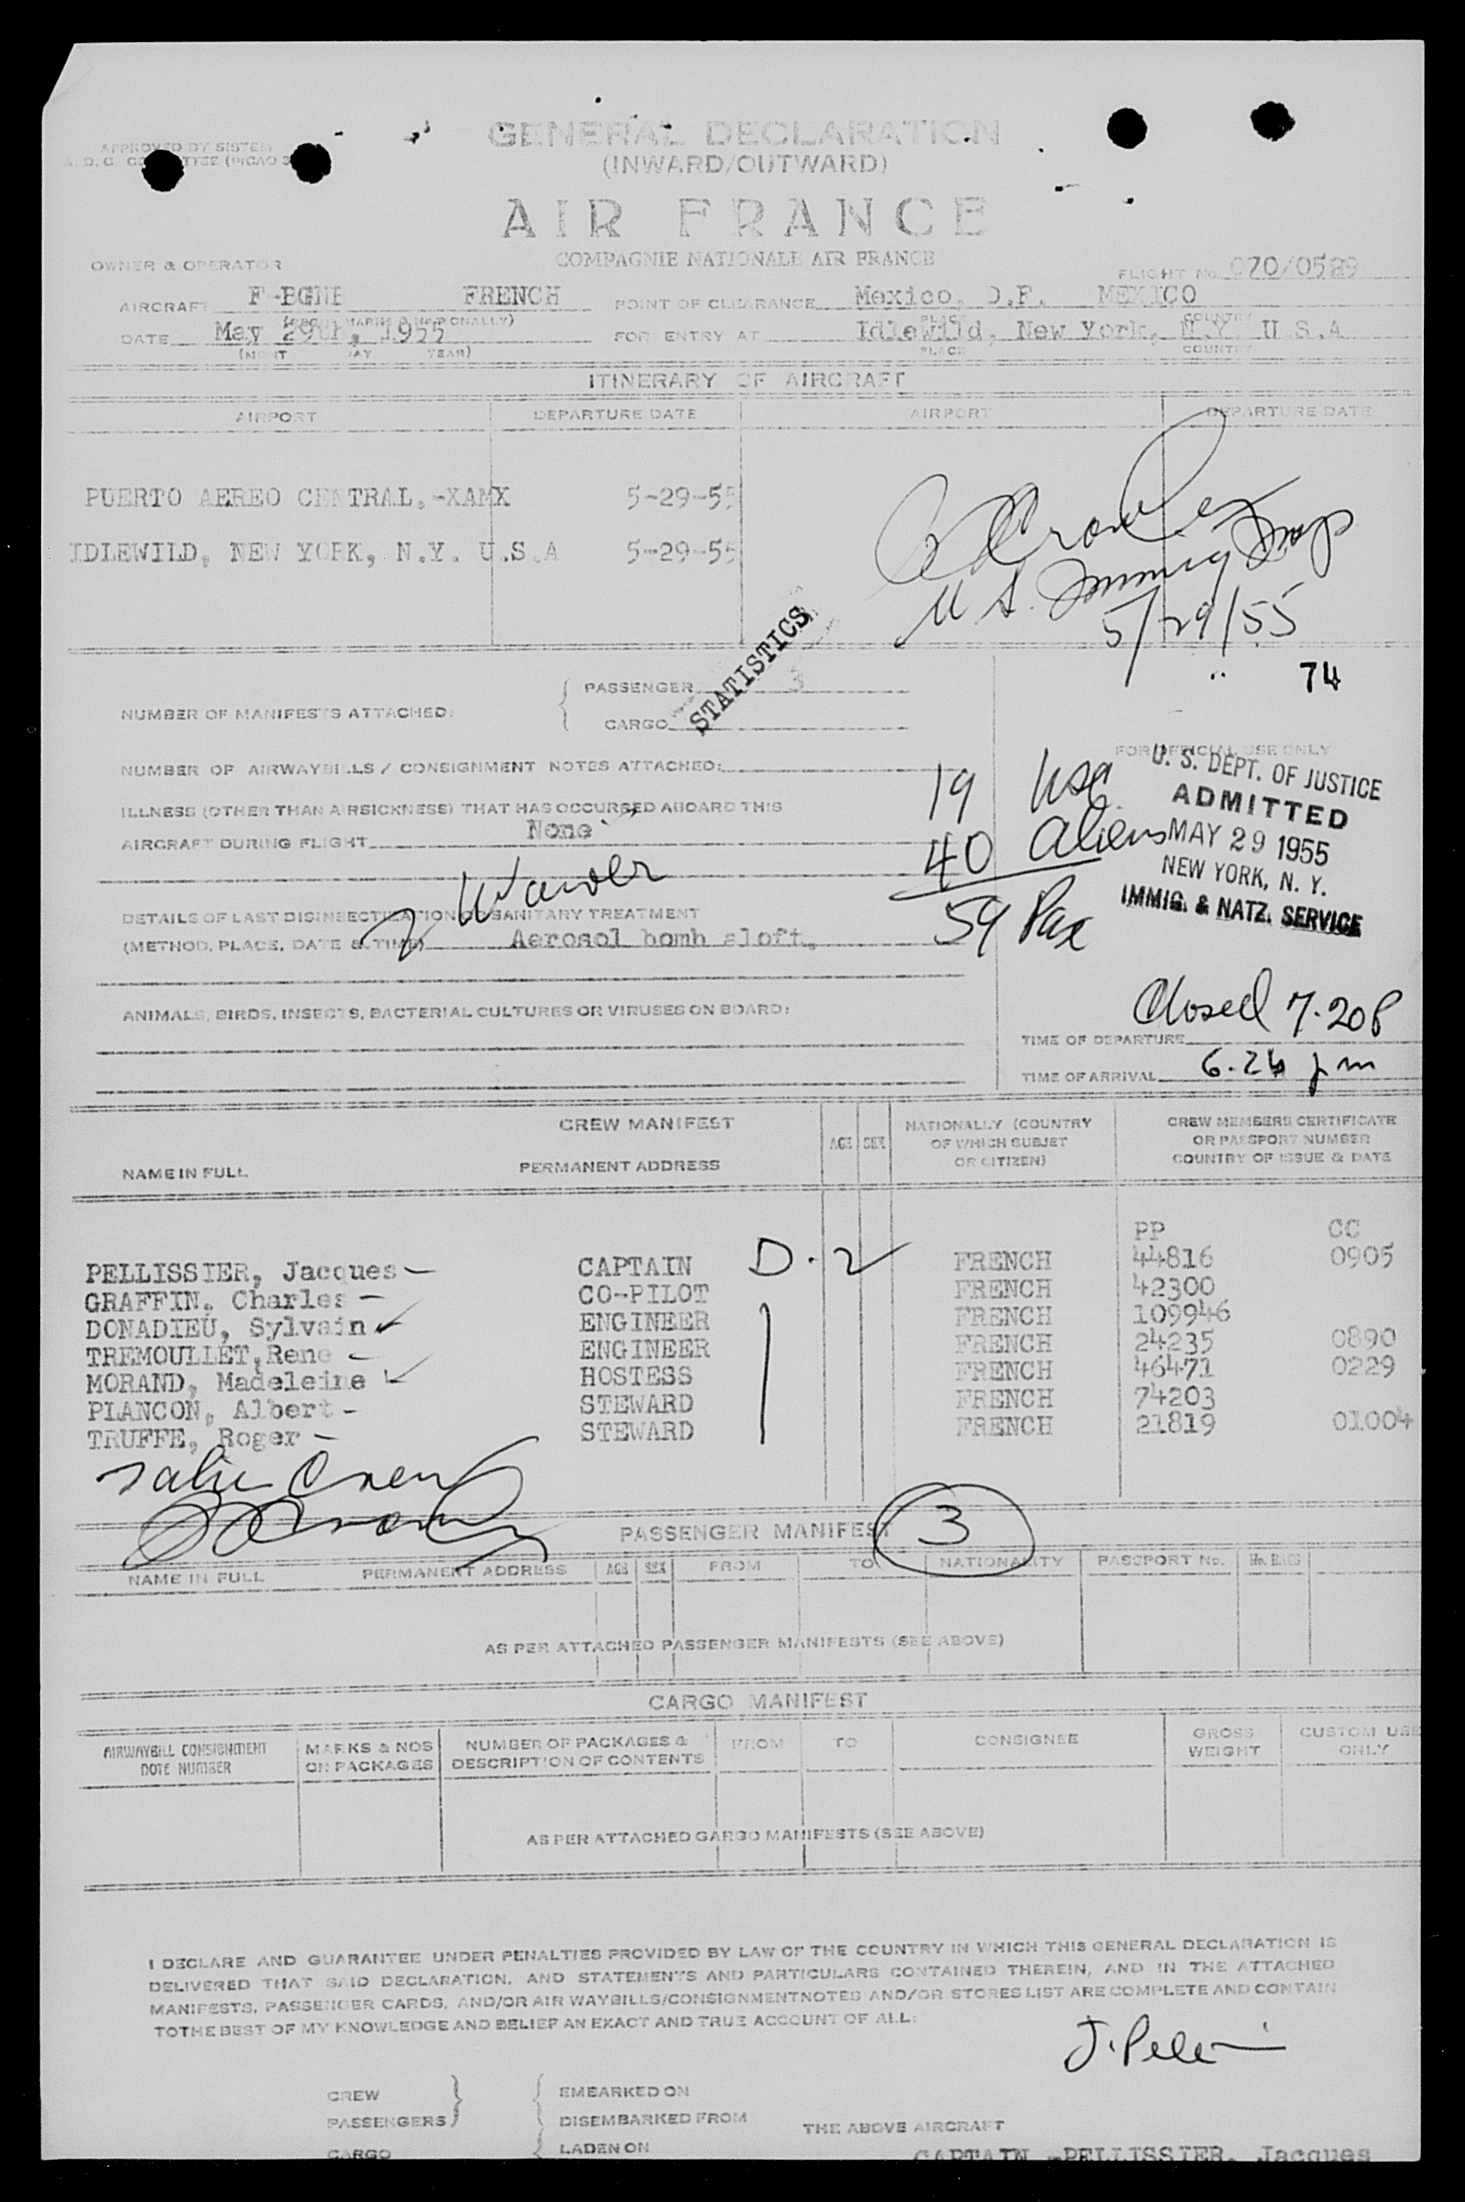 GENERAL DECLARATION
(INWARD/OUTWARD)
APPROVED BY
AIR FRANCE
COMPAGNIE NATIONALE AIR FRANCE
OWNER & OPERATOR
FLIGHT No. 070/0529
AIRCRAFT F-BGNE FRENCH POINT OF CLEARANCE Mexico, D.F. MEXICO
DATE May 29th, 1955 FOR ENTRY AT Idlewild, New York, N.Y. U.S.A
(MONT DAY YEAR) PLACE COUNTRY
ITINERARY OF AIRCRAFT
AIRPORT DEPARTURE DATE AIRPORT DEPARTURE DATE
PUERTO AEREO CENTRAL,-XAMX 5-29-55
IDLEWILD, NEW YORK, N.Y. U.S.A 5-29-55
U.S. Immig Insp
5/29/55
74
STATISTICS
NUMBER OF MANIFESTS ATTACHED:
PASSENGER 3
CARGO
NUMBER OF AIRWAYBILLS / CONSIGNMENT NOTES ATTACHED:
ILLNESS (OTHER THAN AIRSICKNESS) THAT HAS OCCURRED ABOARD THIS
AIRCRAFT DURING FLIGHT None
DETAILS OF LAST DISINSECTIZATION OR SANITARY TREATMENT
(METHOD, PLACE, DATE & TIME) Aerosol bomb aloft,
ANIMALS, BIRDS, INSECTS, BACTERIAL CULTURES OR VIRUSES ON BOARD:
FOR OFFICIAL USE ONLY
19 usc
40 aliens
59 Pax
U. S. DEPT. OF JUSTICE
ADMITTED
MAY 29 1955
NEW YORK, N. Y.
IMMIG. & NATZ. SERVICE
Closed 7.20p
TIME OF DEPARTURE
TIME OF ARRIVAL 6.26 pm
CREW MANIFEST
NAME IN FULL PERMANENT ADDRESS AGE SEX NATIONALLY (COUNTRY OF WHICH SUBJET OR CITIZEN) CREW MEMBERS CERTIFICATE OR PASSPORT NUMBER COUNTRY OF ISSUE & DATE
PP CC
PELLISSIER, Jacques CAPTAIN D-2 FRENCH 44816 0905
GRAFFIN, Charles CO-PILOT FRENCH 42300
DONADIEU, Sylvain ENGINEER FRENCH 109946
TREMOULLET,Rene ENGINEER FRENCH 24235 0890
MORAND, Madeleine HOSTESS FRENCH 46471 0229
PLANCON, Albert STEWARD FRENCH 74203
TRUFFE, Roger STEWARD FRENCH 21819 01004
PASSENGER MANIFEST 3
NAME IN FULL PERMANENT ADDRESS AGE SEX FROM TO NATIONALITY PASSPORT No. No. BAGS
AS PER ATTACHED PASSENGER MANIFESTS (SEE ABOVE)
CARGO MANIFEST
AIRWAYBILL CONSIGNMENT NOTE NUMBER MARKS & NOS ON PACKAGES NUMBER OF PACKAGES & DESCRIPTION OF CONTENTS FROM TO CONSIGNEE GROSS WEIGHT CUSTOM USE ONLY
AS PER ATTACHED CARGO MANIFESTS (SEE ABOVE)
I DECLARE AND GUARANTEE UNDER PENALTIES PROVIDED BY LAW OF THE COUNTRY IN WHICH THIS GENERAL DECLARATION IS
DELIVERED THAT SAID DECLARATION, AND STATEMENTS AND PARTICULARS CONTAINED THEREIN, AND IN THE ATTACHED
MANIFESTS, PASSENGER CARDS, AND/OR AIR WAYBILLS/CONSIGNMENTNOTES AND/OR STORES LIST ARE COMPLETE AND CONTAIN
TOTHE BEST OF MY KNOWLEDGE AND BELIEF AN EXACT AND TRUE ACCOUNT OF ALL:
CREW EMBARKED ON
PASSENGERS DISEMBARKED FROM THE ABOVE AIRCRAFT
CARGO LADEN ON
CAPTAIN -PELLISSIER, Jacques